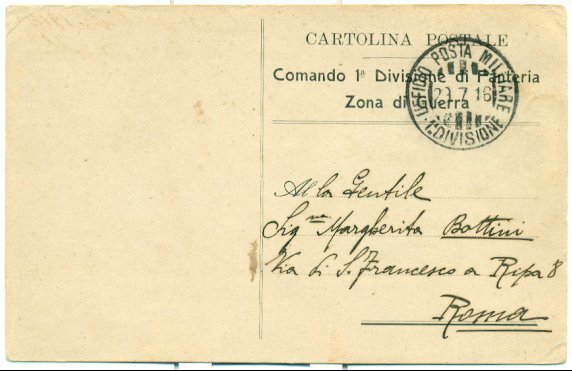 CARTOLINA POSTALE
Comando 1ª Divisione di Fanteria
Zona di Guerra
UFFICIO POSTA MILITARE
7.16
1ª DIVISIONE
Alla Gentile
Sigⁿᵃ Margherita Bottini
Via di S. Francesco a Ripa 8
Roma